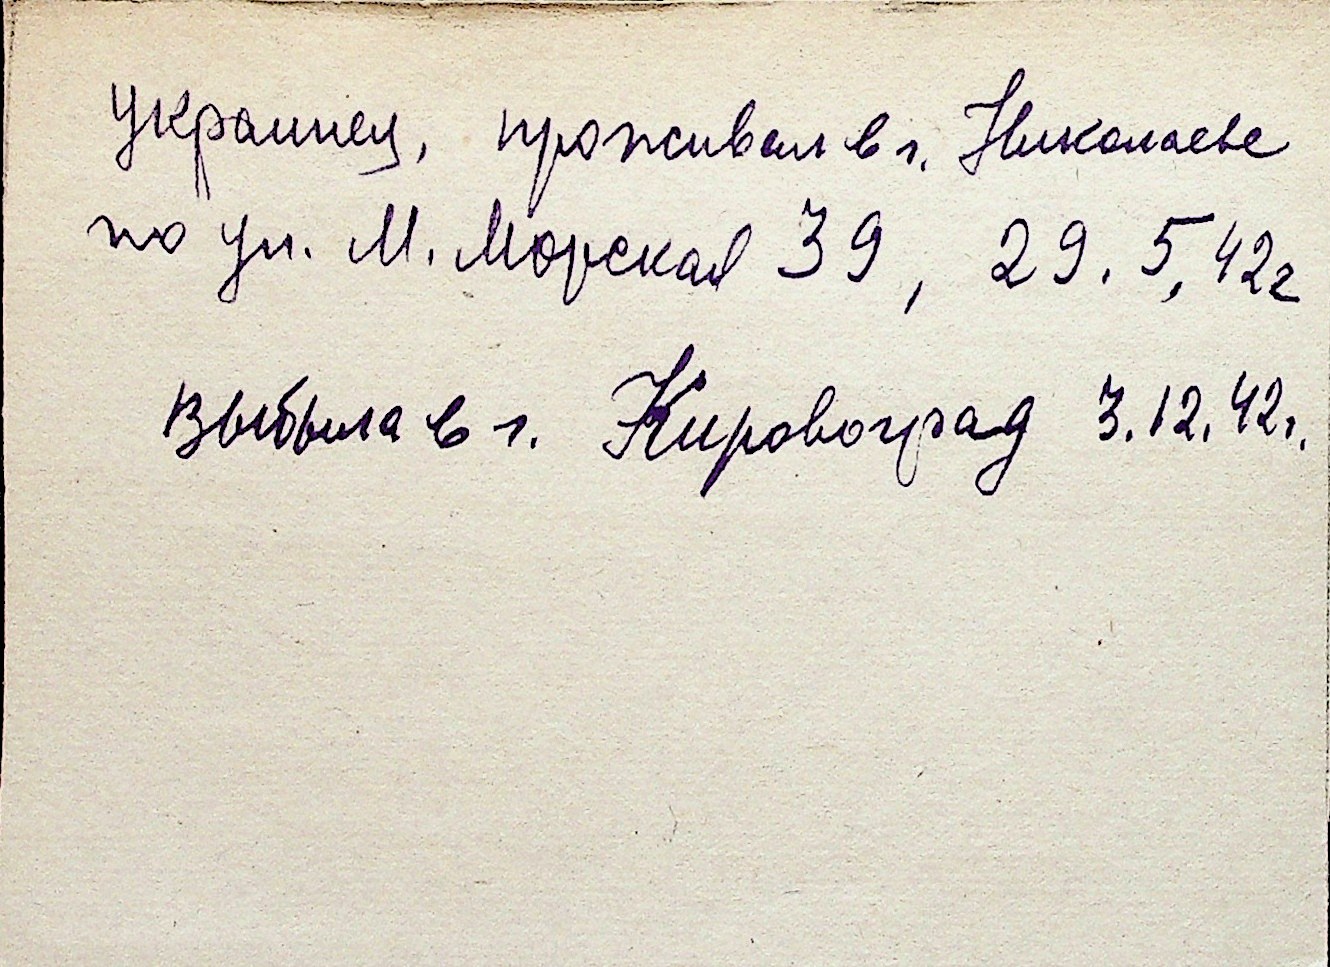 украинец, проживал в г. Николаеве
по ул. М. Морская 39, 29.5.42г
выбыла в г. Кировоград 3.12.42г.